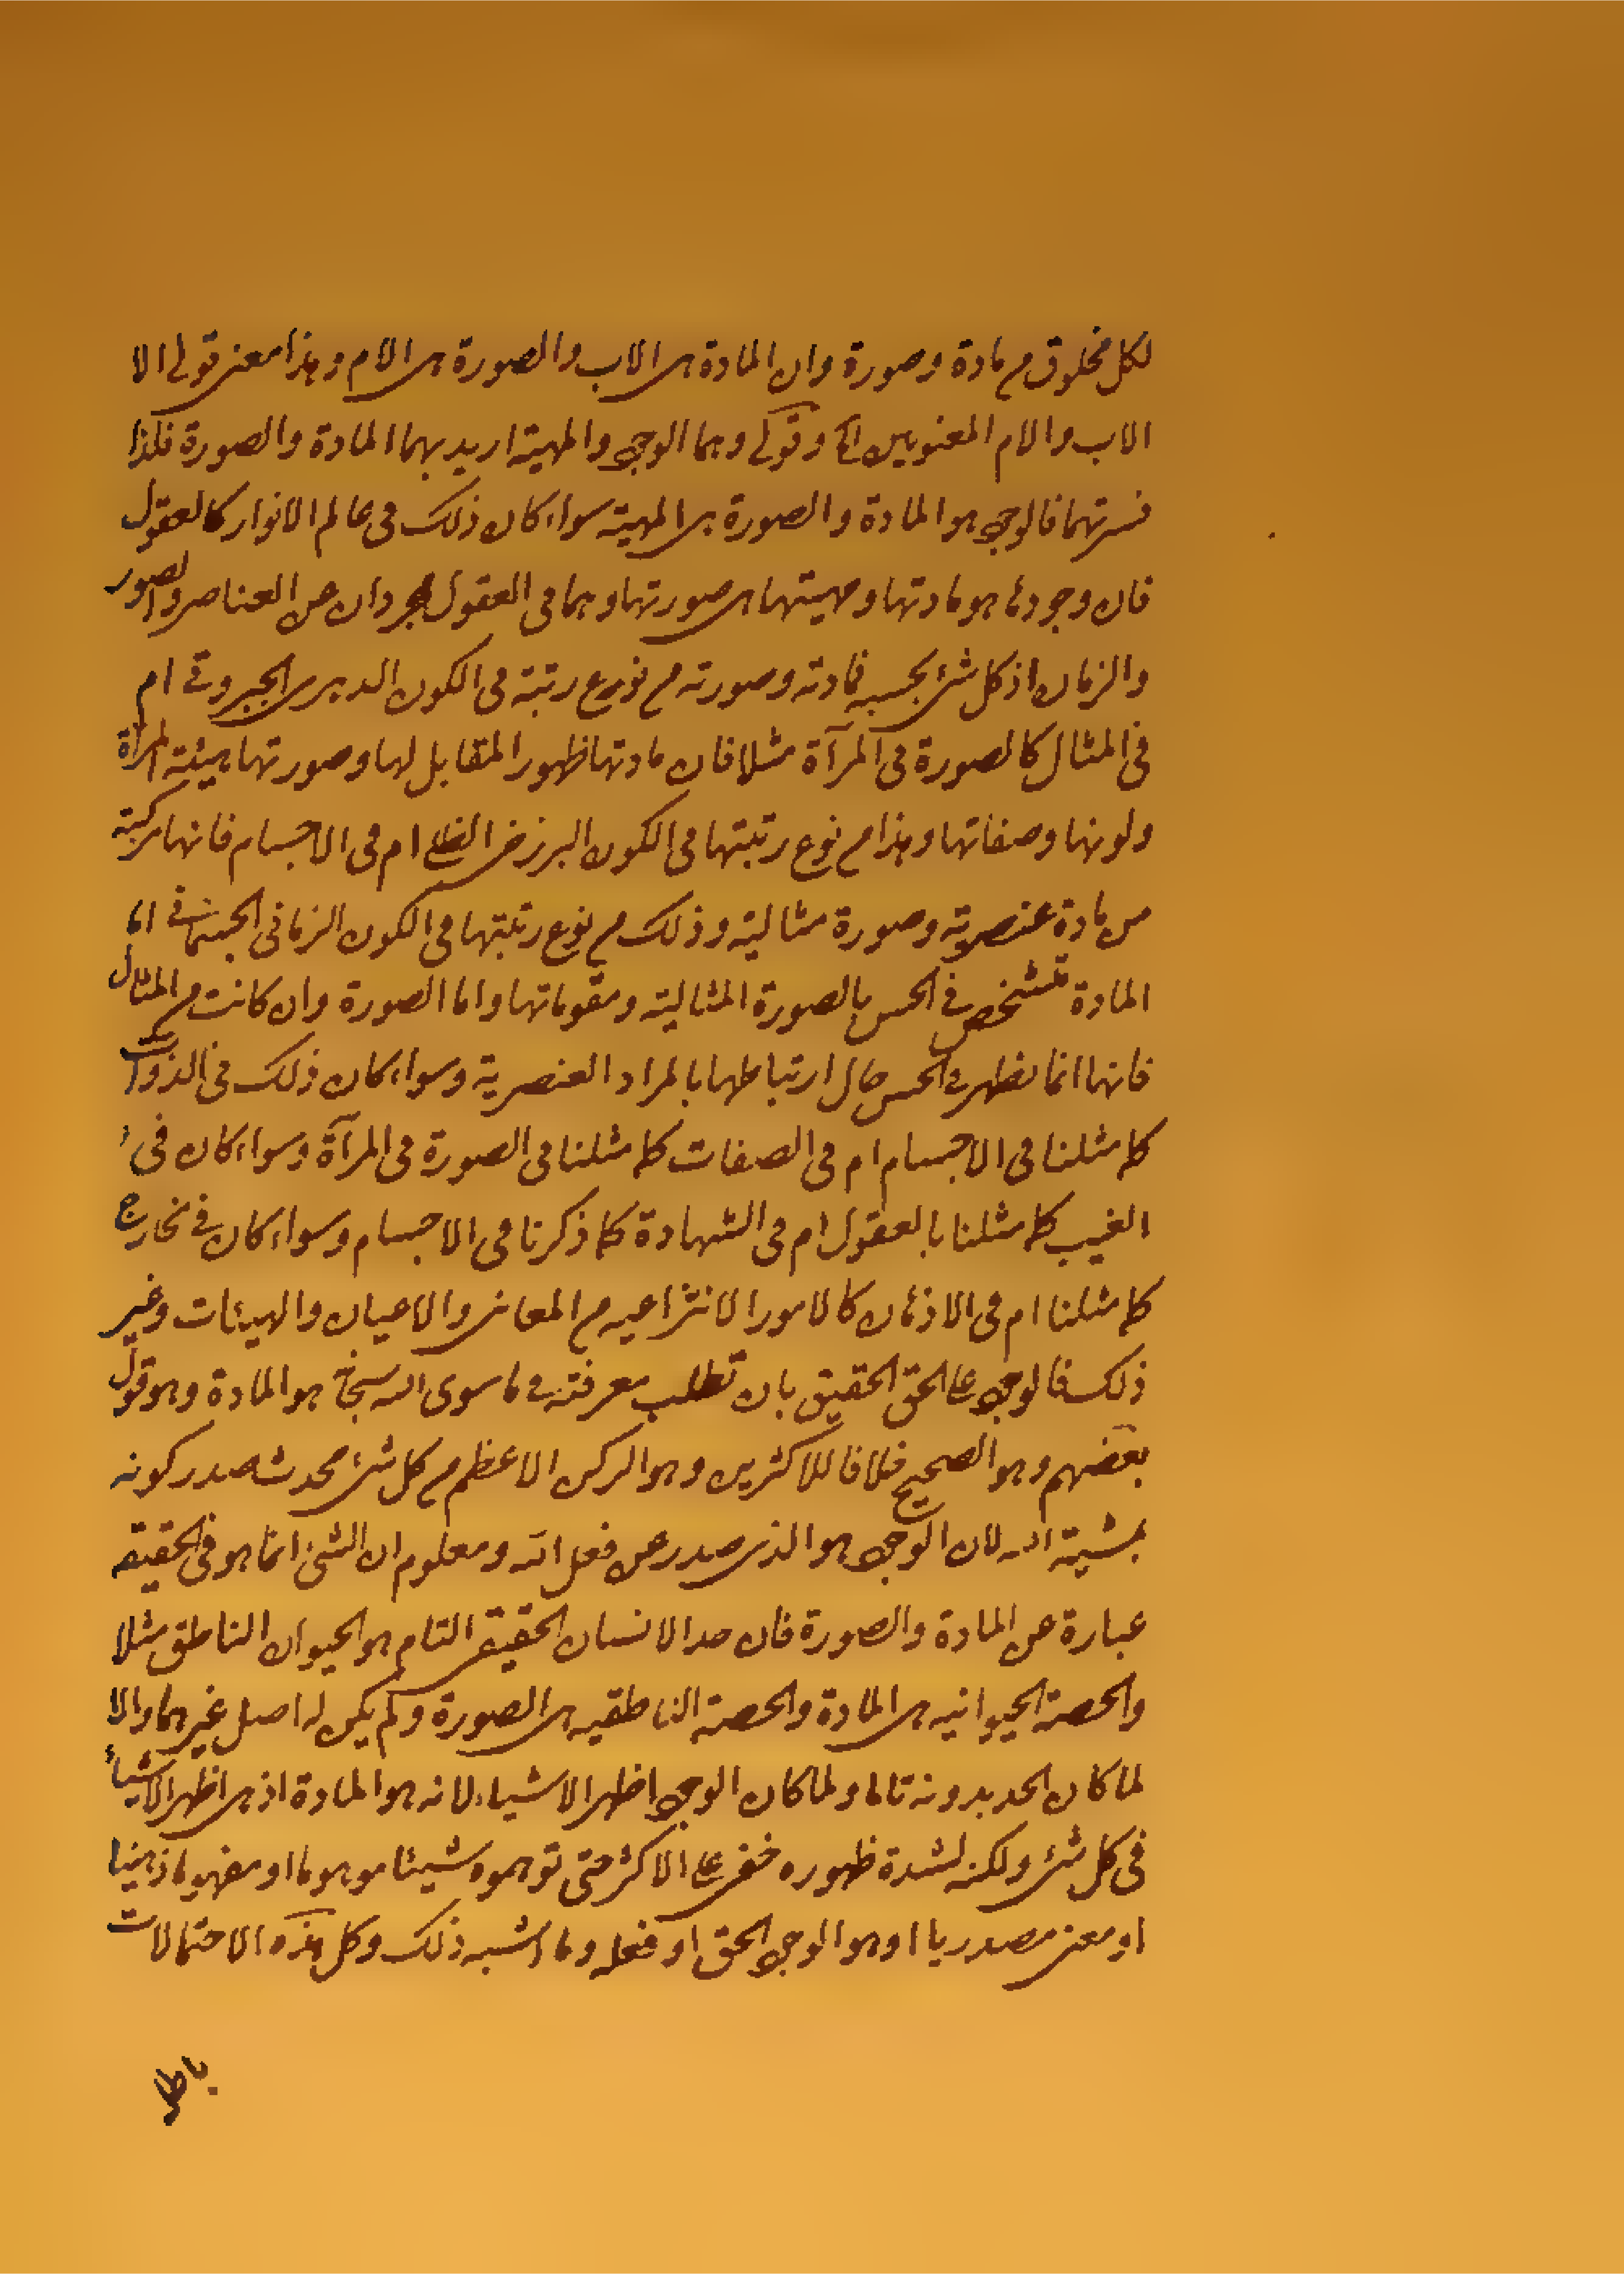 لكل مخلوق من مادة وصورة وان المادة هى الاب والصورة هى الام وهذا معنى قولى الا
الاب والام المعنويين الخ وقولى وهما الوجود والمهية اريد بهما المادة والصورة فلذا
فسرتهما فالوجود هو المادة والصورة هى المهية سواء كان ذلك فى عالم الانوار كالعقول
فان وجودها هو مادتها ومهيتها هى صورتها وهما فى العقول مجردان عن العناصر والصور
والزمان اذ كل شئ بحسبه فمادته وصورته من نوع رتبة فى الكون الدهرى الجبروتى ام
فى المثال كالصورة فى المرآة مثلا فان مادتها ظهور المقابل لها وصورتها هيئة المرآة
ولونها وصفاتها وهذا من نوع رتبتها فى الكون البرزخى الظلى ام فى الاجسام فانها مركبة
من مادة عنصرية وصورة مثالية وذلك من نوع رتبتها فى الكون الزمانى الجسمانى اما
المادة فتشخص فى الحس بالصورة المثالية ومقوماتها واما الصورة وان كانت من المثال
فانها انما تظهر فى الحس حال ارتباطها بالمواد العنصرية وسواء كان ذلك فى الذوات
كما مثلنا فى الاجسام ام فى الصفات كما مثلنا فى الصورة فى المرآة وسواء كان فى
الغيب كما مثلنا بالعقول ام فى الشهادة كما ذكرنا فى الاجسام وسواء كان فى الخارج
كما مثلنا ام فى الاذهان كالامور الانتزاعيه من المعانى والاعيان والهيئات وغير
ذلك فالوجود على الحق الحقيق بان تطلب معرفته فى ما سوى الله سبحانه هو المادة وهو قول
بعضهم وهو الصحيح خلافا للاكثرين وهو الركن الاعظم من كل شئ محدث صدر كونه
بمشية الله لان الوجود هو الذى صدر عن فعل الله ومعلوم ان الشئ انما هو فى الحقيقة
عبارة عن المادة والصورة فان حد الانسان الحقيقى التام هو الحيوان الناطق مثلا
والحصة الحيوانيه هى المادة والحصة الناطقيه هى الصورة ولم يكن له اصل غيرهما والا
لما كان الحد بدونه تاما ولما كان الوجود اظهر الاشياء لانه هو المادة اذ هى اظهر الاشياء
فى كل شئ ولكنه لشدة ظهوره خفى على الاكثر حتى توهموه شيئا موهوما او مفهوما ذهنيا
او معنى مصدريا او هو الوجود الحق او فعله وما اشبه ذلك وكل هذه الاحتمالات
باطلة